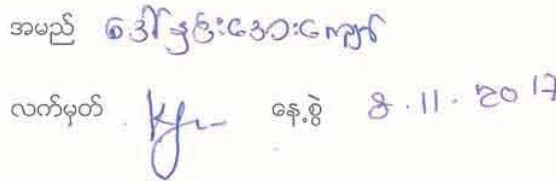 အမည် ဒေါ်နှင်းအေးကျော်
လက်မှတ် နေ့စွဲ 8.11.2017